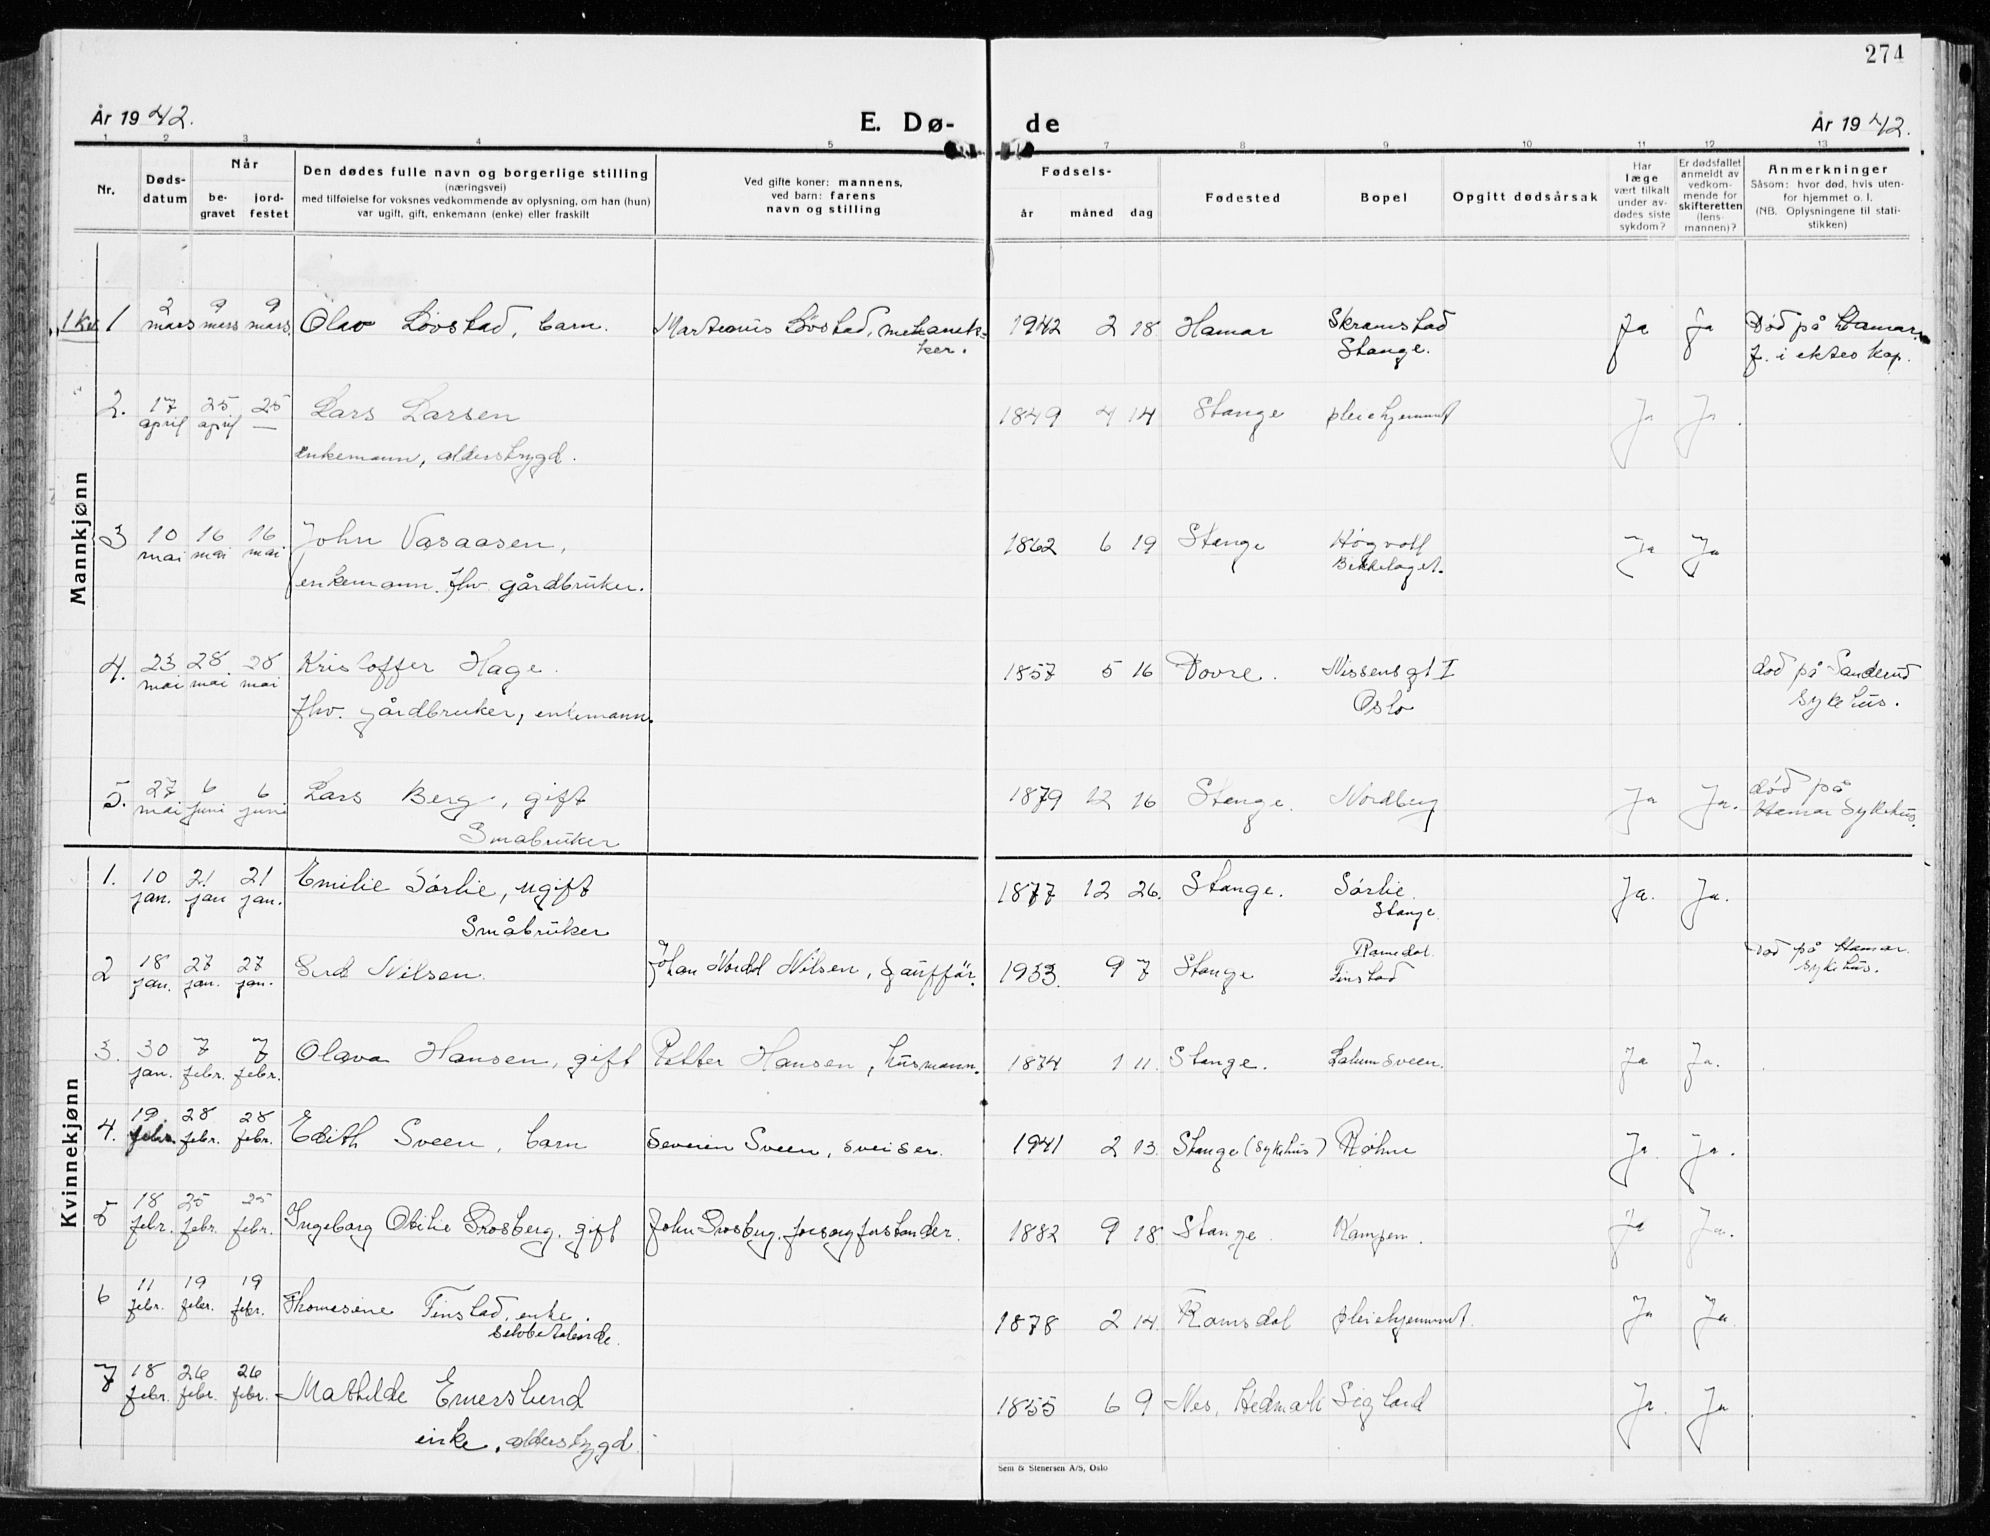 274
År 1942.
E. Dø-
de
År 1942.
1 2 3 4 5 7 8 9 10 11 12 13
Nr.
Døds-
datum
Når
be-
gravet
jord-
festet
Den dødes fulle navn og borgerlige stilling
(næringsvei)
med tilføielse for voksnes vedkommende av oplysning, om han (hun)
var ugift, gift, enkemann (enke) eller fraskilt
Ved gifte koner: mannens,
ved barn: farens
navn og stilling
Fødsels-
år måned dag
Fødested
Bopel
Opgitt dødsårsak
Har
læge
vært tilkalt
under av-
dødes siste
sykdom?
Er dødsfallet
anmeldt av
vedkom-
mende for
skifteretten
(lens-
mannen)?
Anmerkninger
Såsom: hvor død, hvis uten-
for hjemmet o. l.
(NB. Oplysningene til stati-
stikken)
Mannkjønn
1 2 mars 9 mars 9 mars Olav Løvstad, barn. Marteinus Løvstad, mekanik- 1942 2 18. Hamar Skramstad Ja Ja Død på Hamar
ker. Stange. f. i ekteskap.
2. 17 april 25 april 25 — Lars Larsen 1849 4 14 Stange pleiehjemmet Ja Ja.
enkemann, alderstrygd.
3 10 mai 16 mai 16 mai John Vasaasen, 1862 6 19 Stange Høgvoll Ja Ja
enkemann. fhv. gårdbruker. Bekkelaget.
4. 23 mai 28 mai 28 mai Kristoffer Hage. 1857 5 16 Dovre. Nissensgt I død på Sanderud
fhv. gårdbruker, enkemann. Oslo sykehus.
5. 27 mai 6 juni 6 juni Lars Berg, gift 1879 12 16 Stange. Nordberg Ja Ja. død på
Småbruker Hamar Sykehus.
Kvinnekjønn
1. 10 jan. 21 jan 21 jan. Emilie Sørlie, ugift 1877 12 26. Stange. Sørlie Ja. Ja.
Småbruker Stange
2 18 jan. 27 jan. 27 jan. Nilsen. Johan Nordol Nilsen, sjauffør. 1933. 9 7 Stange Romedal Finstad død på Hamar
sykehus.
3. 30 jan. 7 febr. 7 febr. Olava Hansen, gift Petter Hansen, husmann. 1874 1 11. Stange. Ja Ja.
4. 19 febr. 28 febr. 28 febr. Edith Sveen, barn Severin Sveen, sveiser. 1941 2 13. Stange (sykehus) Røhne Ja. Ja.
5 18 febr. 25 febr. 25 febr. Ingeborg Otilie Prosberg, gift John Prosberg, forsorgforstander. 1882 9 18. Stange Kampen. Ja Ja.
6 11 febr. 19 febr. 19 febr. Thomasine Finstad, enke. 1878 2 14. Romsdal pleiehjemmet. Ja Ja
selvbetalende.
7 18 febr. 26 febr. 26 febr. Mathilde Emerslund 1855 6 9 Nes, Hedmark Ja. Ja
enke, alderstrygd.
Sem & Stenersen A/S, Oslo